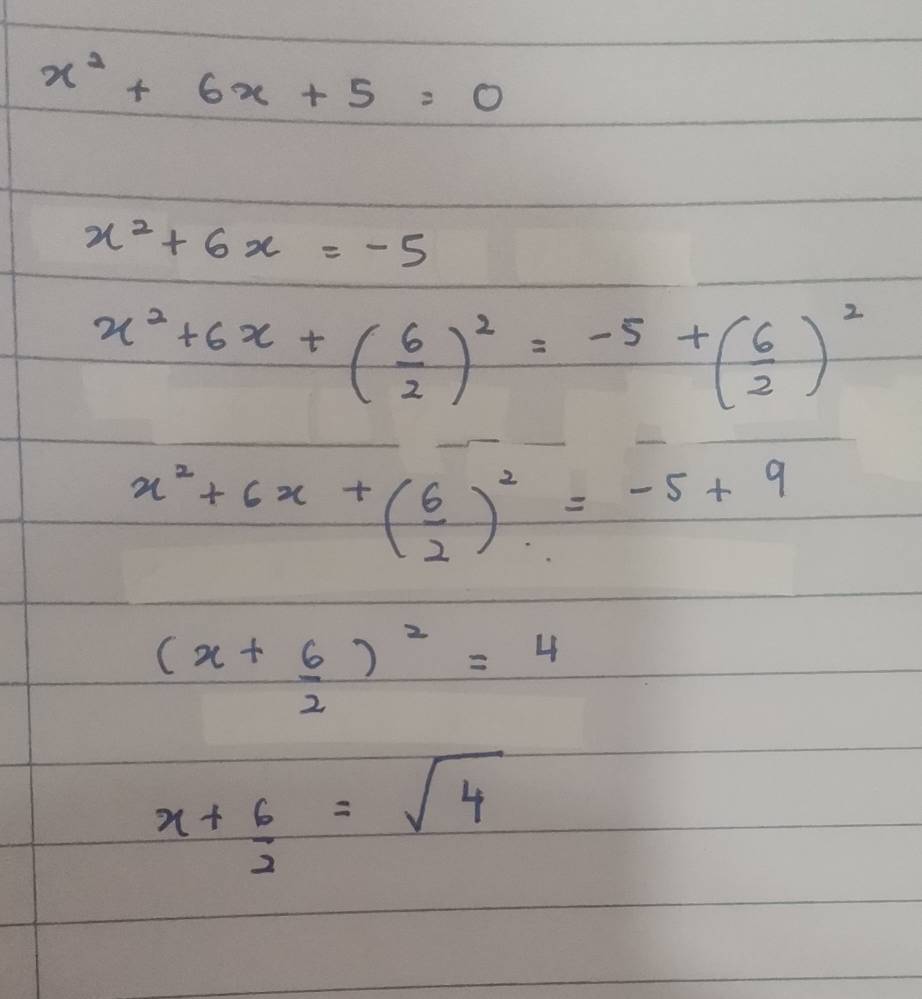 x² + 6x + 5 = 0
x² + 6x = -5
x² + 6x + (6/2)² = -5 + (6/2)²
x² + 6x + (6/2)² = -5 + 9
(x + 6/2)² = 4
x + 6/2 = √4